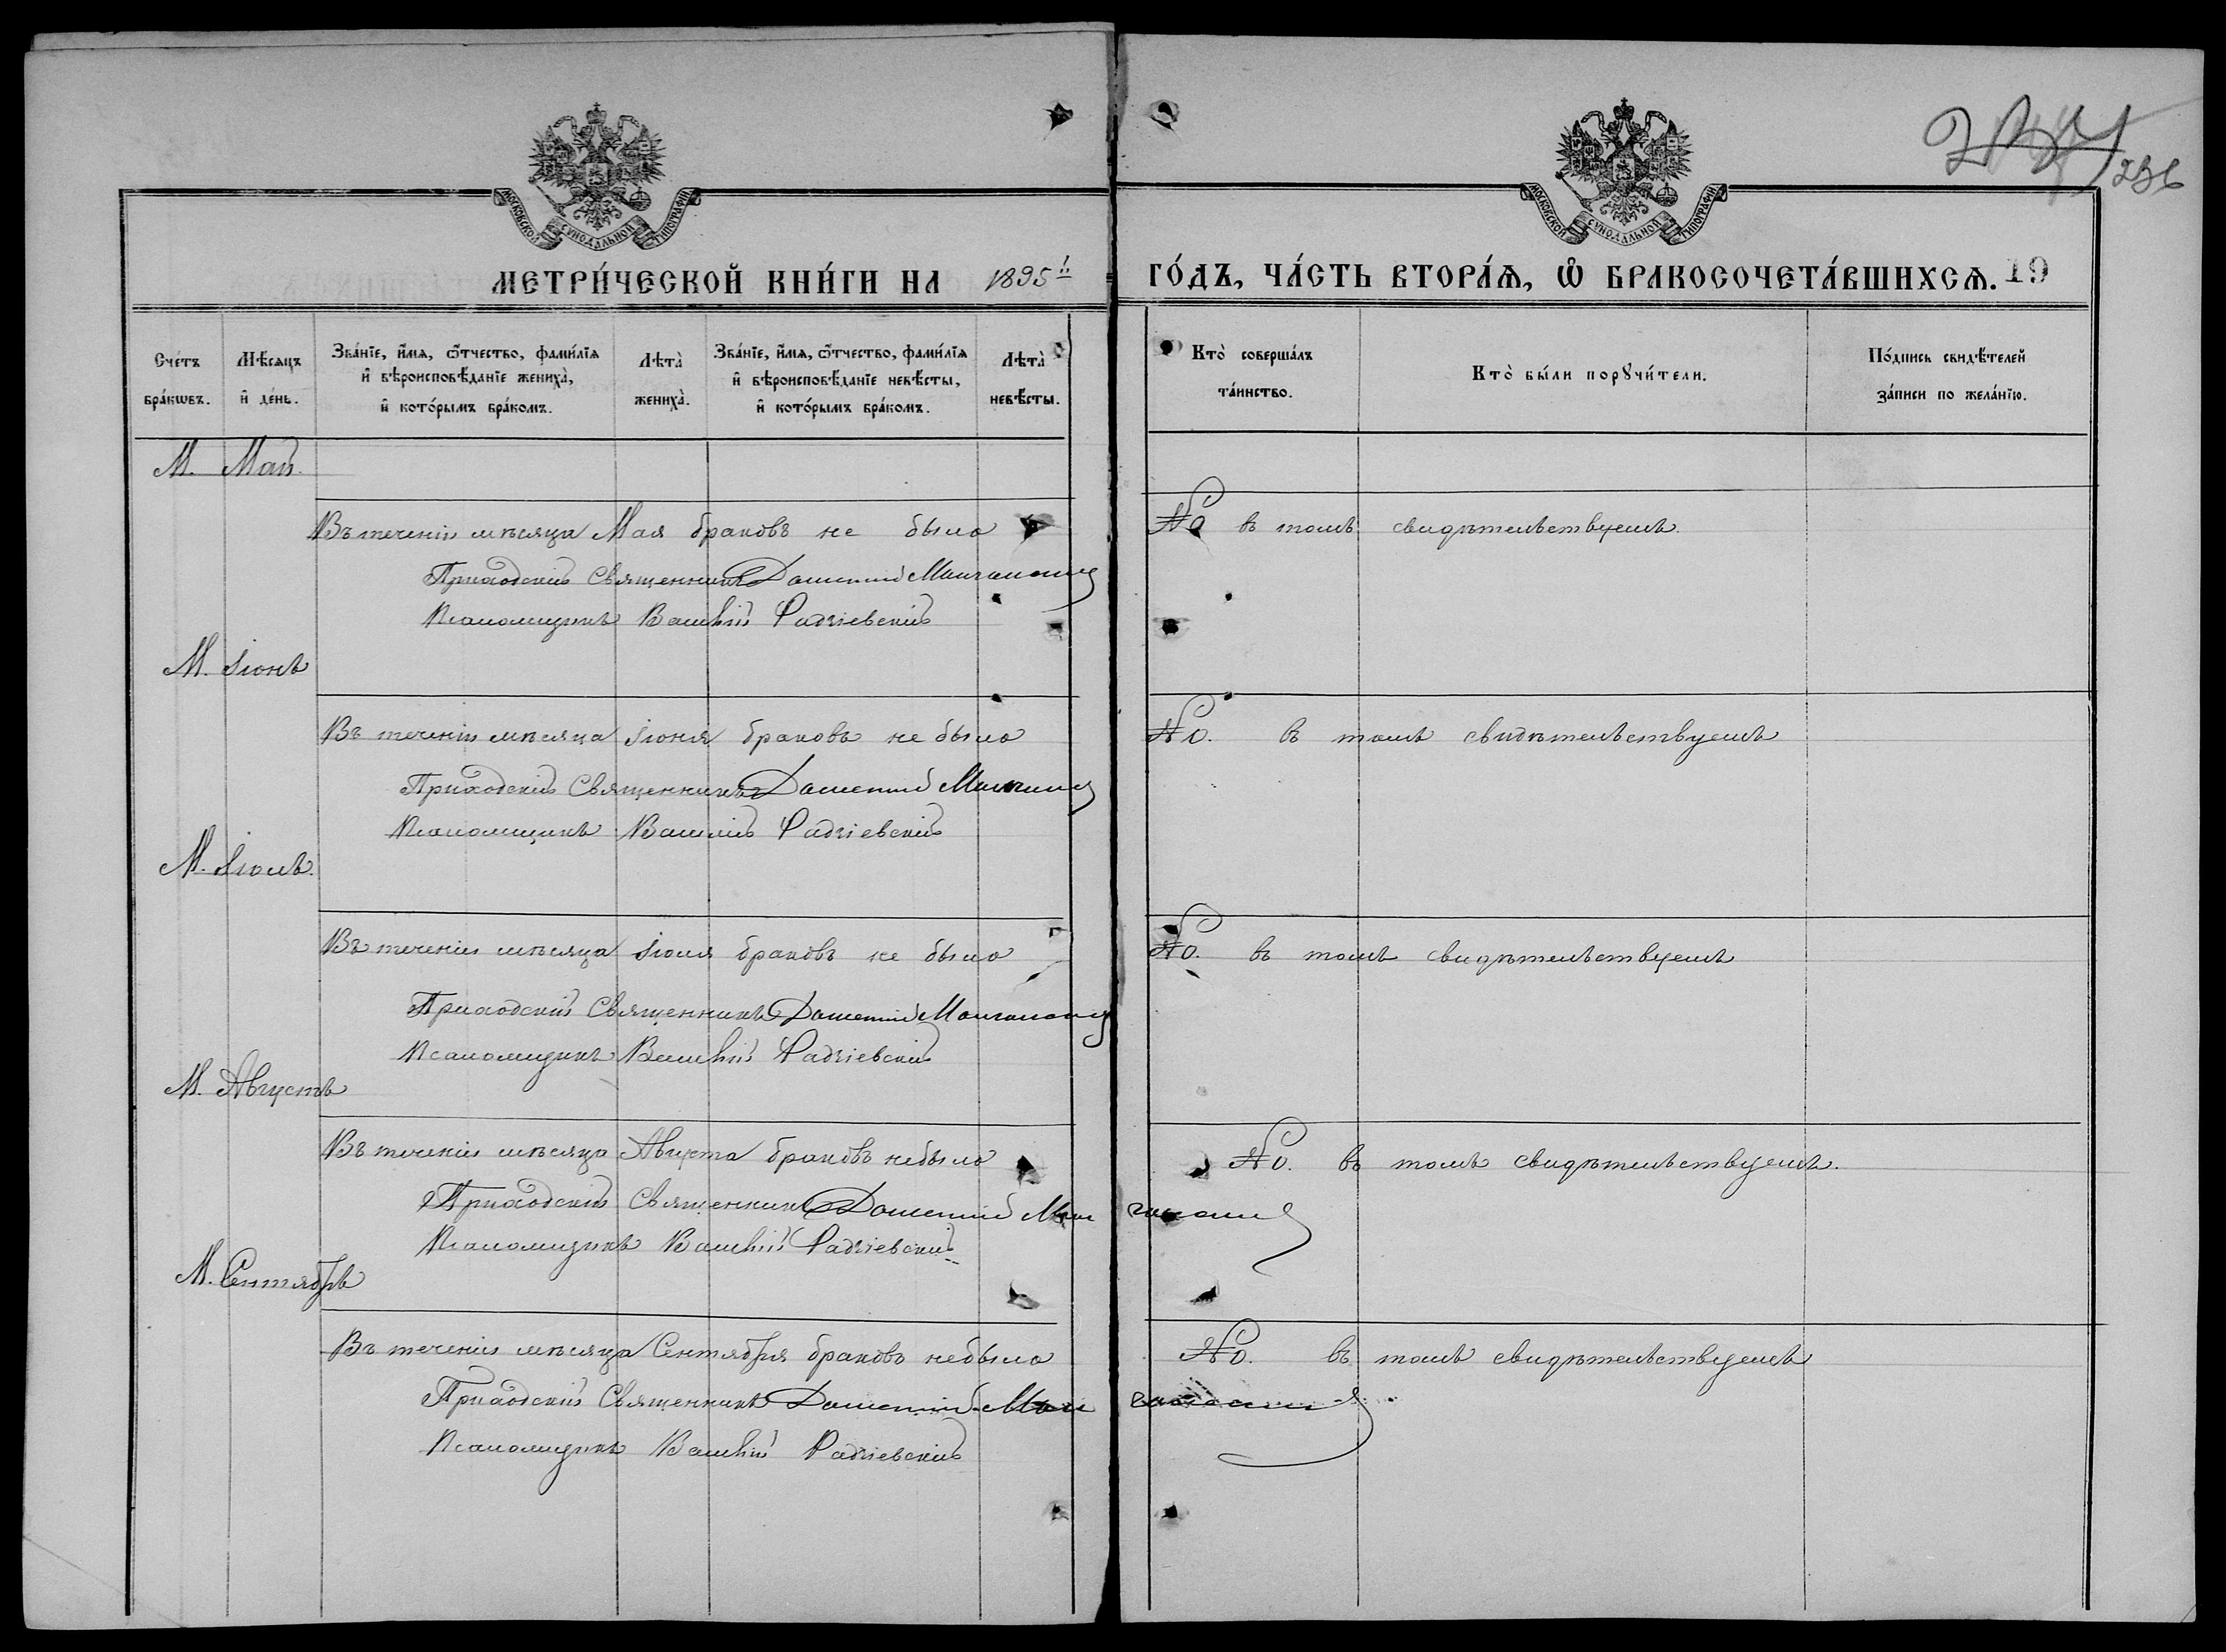 236
МОСКОВСКОЙ СУНОДАЛЬНОЙ ТИПОГРАФІИ
МОСКОВСКОЙ СУНОДАЛЬНОЙ ТИПОГРАФІИ
МЕТРИ́ЧЕСКОЙ КНИ́ГИ НА 1895й ГО́ДЪ, ЧА́СТЬ ВТОРА́Ѧ, Ѽ БРАКОСОЧЕТА́ВШИХСѦ. 19
Сче́тъ бра́кѡвъ.
Мѣ́сѧцъ и҆ де́нь.
Зва́нїе, и҆́мѧ, ѻ҆́тчество, фами́лїѧ
и҆ вѣроисповѣ́данїе жениха̀,
и҆ кото́рымъ бра́комъ.
Лѣта̀ жениха̀.
Зва́нїе, и҆́мѧ, ѻ҆́тчество, фами́лїѧ
и҆ вѣроисповѣ́данїе невѣ́сты,
и҆ кото́рымъ бра́комъ.
Лѣта̀ невѣ́сты.
Кто̀ соверша́лъ та́инство.
Кто̀ бы́ли порꙋчи́тели.
По́дпись свидѣ́телей за́писи по жела́нїю.
М. Май.
Въ теченіи мѣсяца Мая браковъ не было No въ томъ свидѣтельствуемъ.
Приходскій Священникъ
Псаломщикъ Василій Радзіевскій
М. Іюнь
Въ теченіи мѣсяца Іюня браковъ не было No. въ томъ свидѣтельствуемъ
Приходскій Священникъ
Псаломщикъ Василій Радзіевскій
М. Іюль.
Въ теченіи мѣсяца Іюля браковъ не было No. въ томъ свидѣтельствуемъ
Приходскій Священникъ
Псаломщикъ Василій Радзіевскій
М. Августъ
Въ теченіи мѣсяца Августа браковъ небыло No. въ томъ свидѣтельствуемъ.
Приходскій Священникъ
Псаломщикъ Василій Радзіевскій
М. Сентябрь
Въ теченіи мѣсяца Сентября браковъ небыло No. въ томъ свидѣтельствуемъ
Приходскій Священникъ
Псаломщикъ Василій Радзіевскій